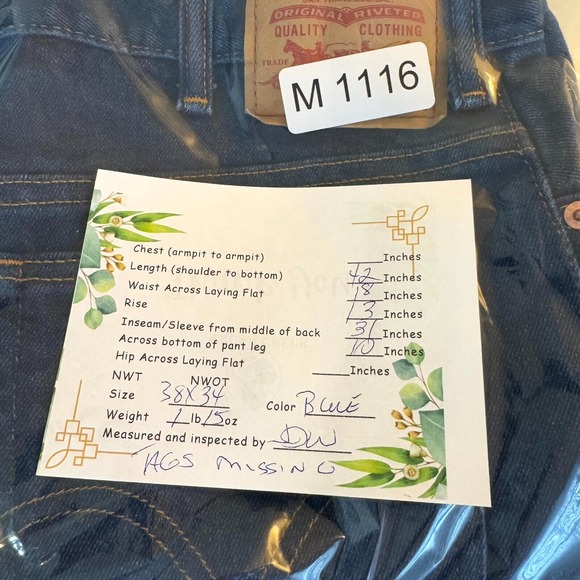 SAN FRANCISCO, CAL.
ORIGINAL RIVETED
QUALITY CLOTHING
TRADE
M 1116
Chest (armpit to armpit) ___Inches
Length (shoulder to bottom) 42 Inches
Waist Across Laying Flat 18 Inches
Rise 13 Inches
Inseam/Sleeve from middle of back 31 Inches
Across bottom of pant leg 10 Inches
Hip Across Laying Flat ___Inches
NWT NWOT
Size 38X34 Color BLUE
Weight 1 lb 15 oz
Measured and inspected by DW
TAGS MISSING